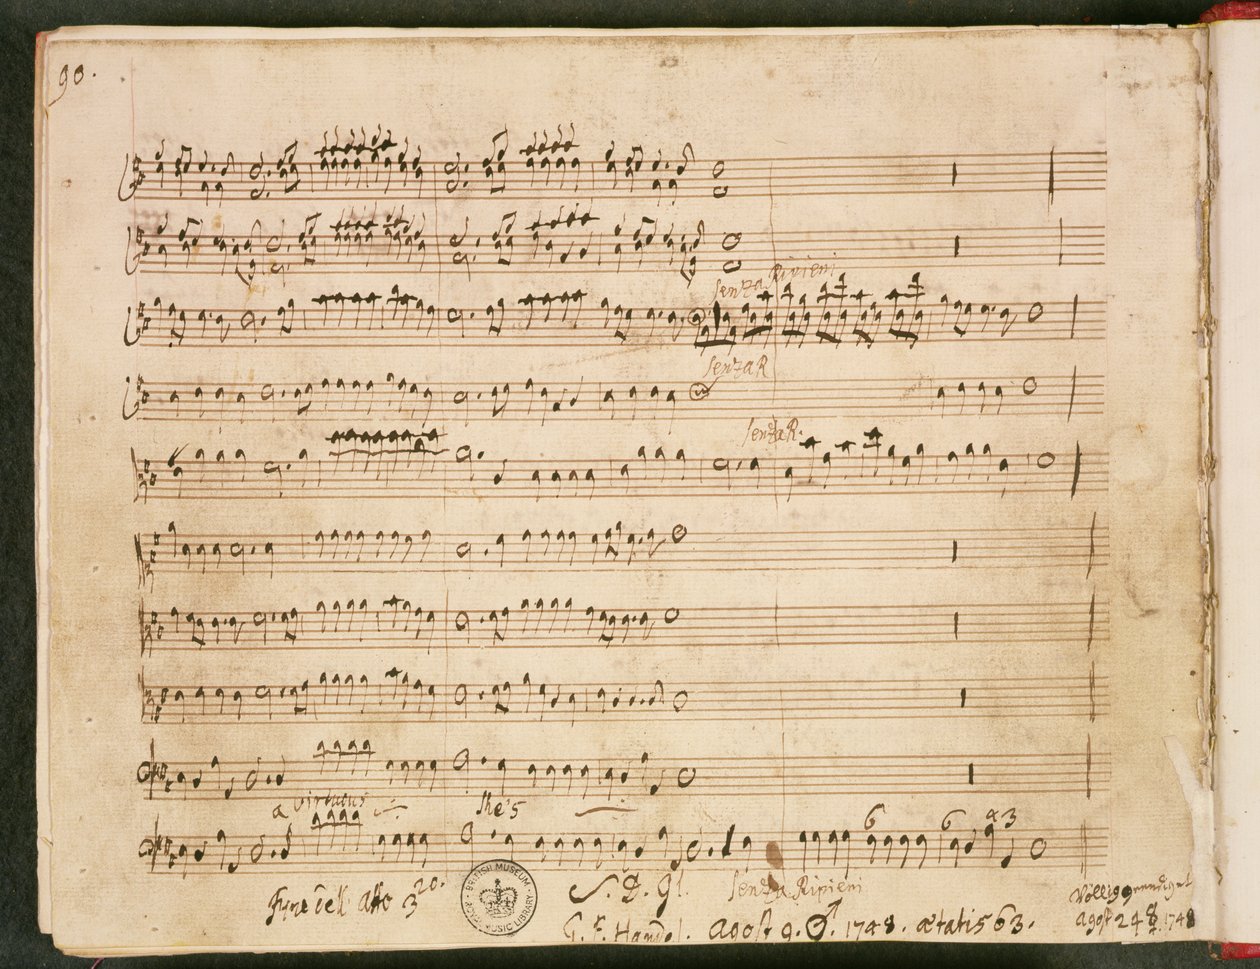 90.
senza Ripieni
senza R
senza R.
a virtuous
she's
6 6 43
Fine dell Atto 3
S. D. Gl. senza Ripieni
völlig geendiget
G. F. Handel. Agost 9. ♂. 1748. ætatis 63.
agost 24 ☿ 1748
BRITISH MUSEUM
MUSIC LIBRARY